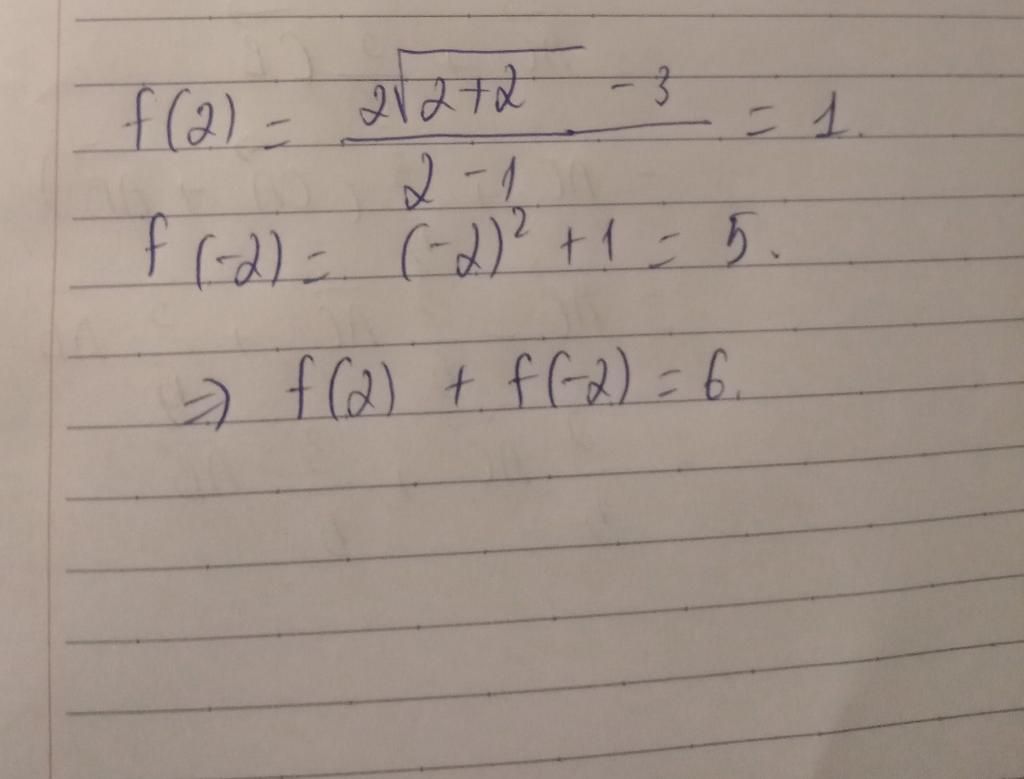 f(2) = \frac{2\sqrt{2+2} - 3}{2 - 1} = 1.
f(-2) = (-2)² + 1 = 5.
⇒ f(2) + f(-2) = 6.